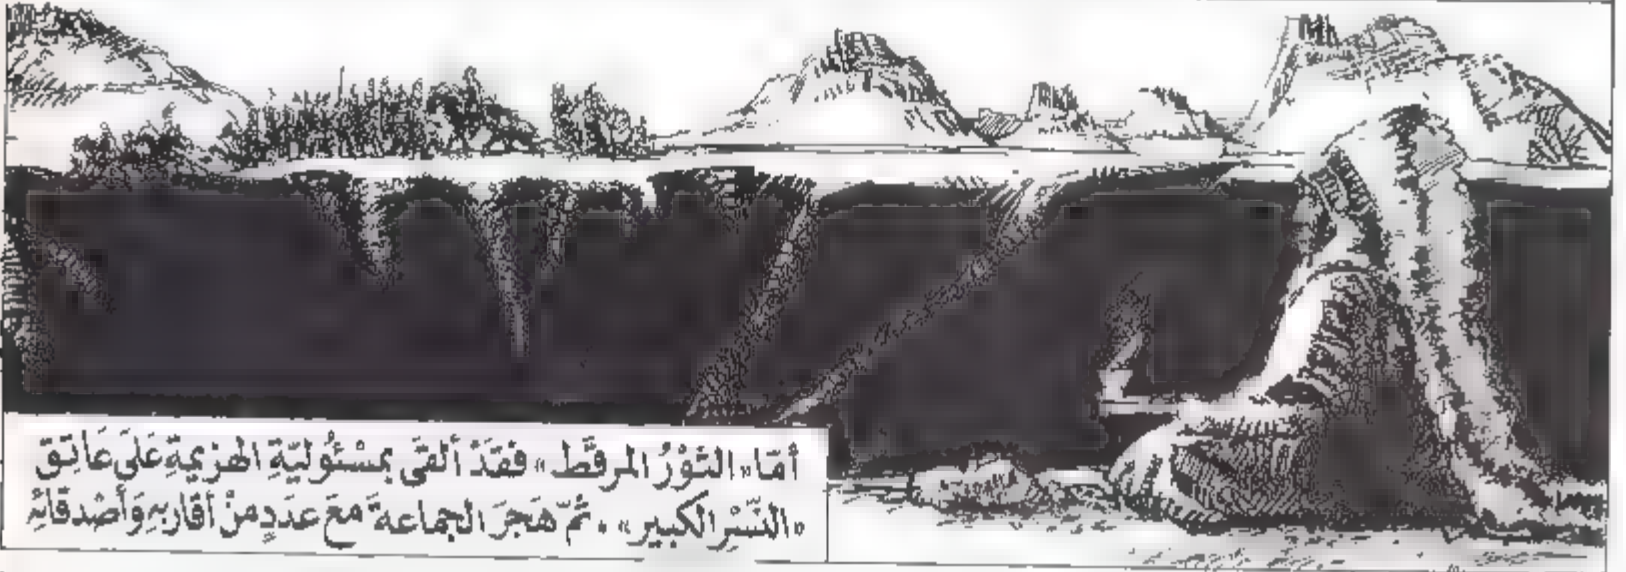 أمَّا «الثَوْرُ المرقَّط» فقَدْ ألقَى بمسْئُوليّةِ الهزيمةِ عَلَى عَاتِق
«النَسْرِ الكبيرِ» . ثمّ هَجَرَ الجماعةَ معَ عدَدٍ منْ أقاربِهِ وَأصْدقائِهِ